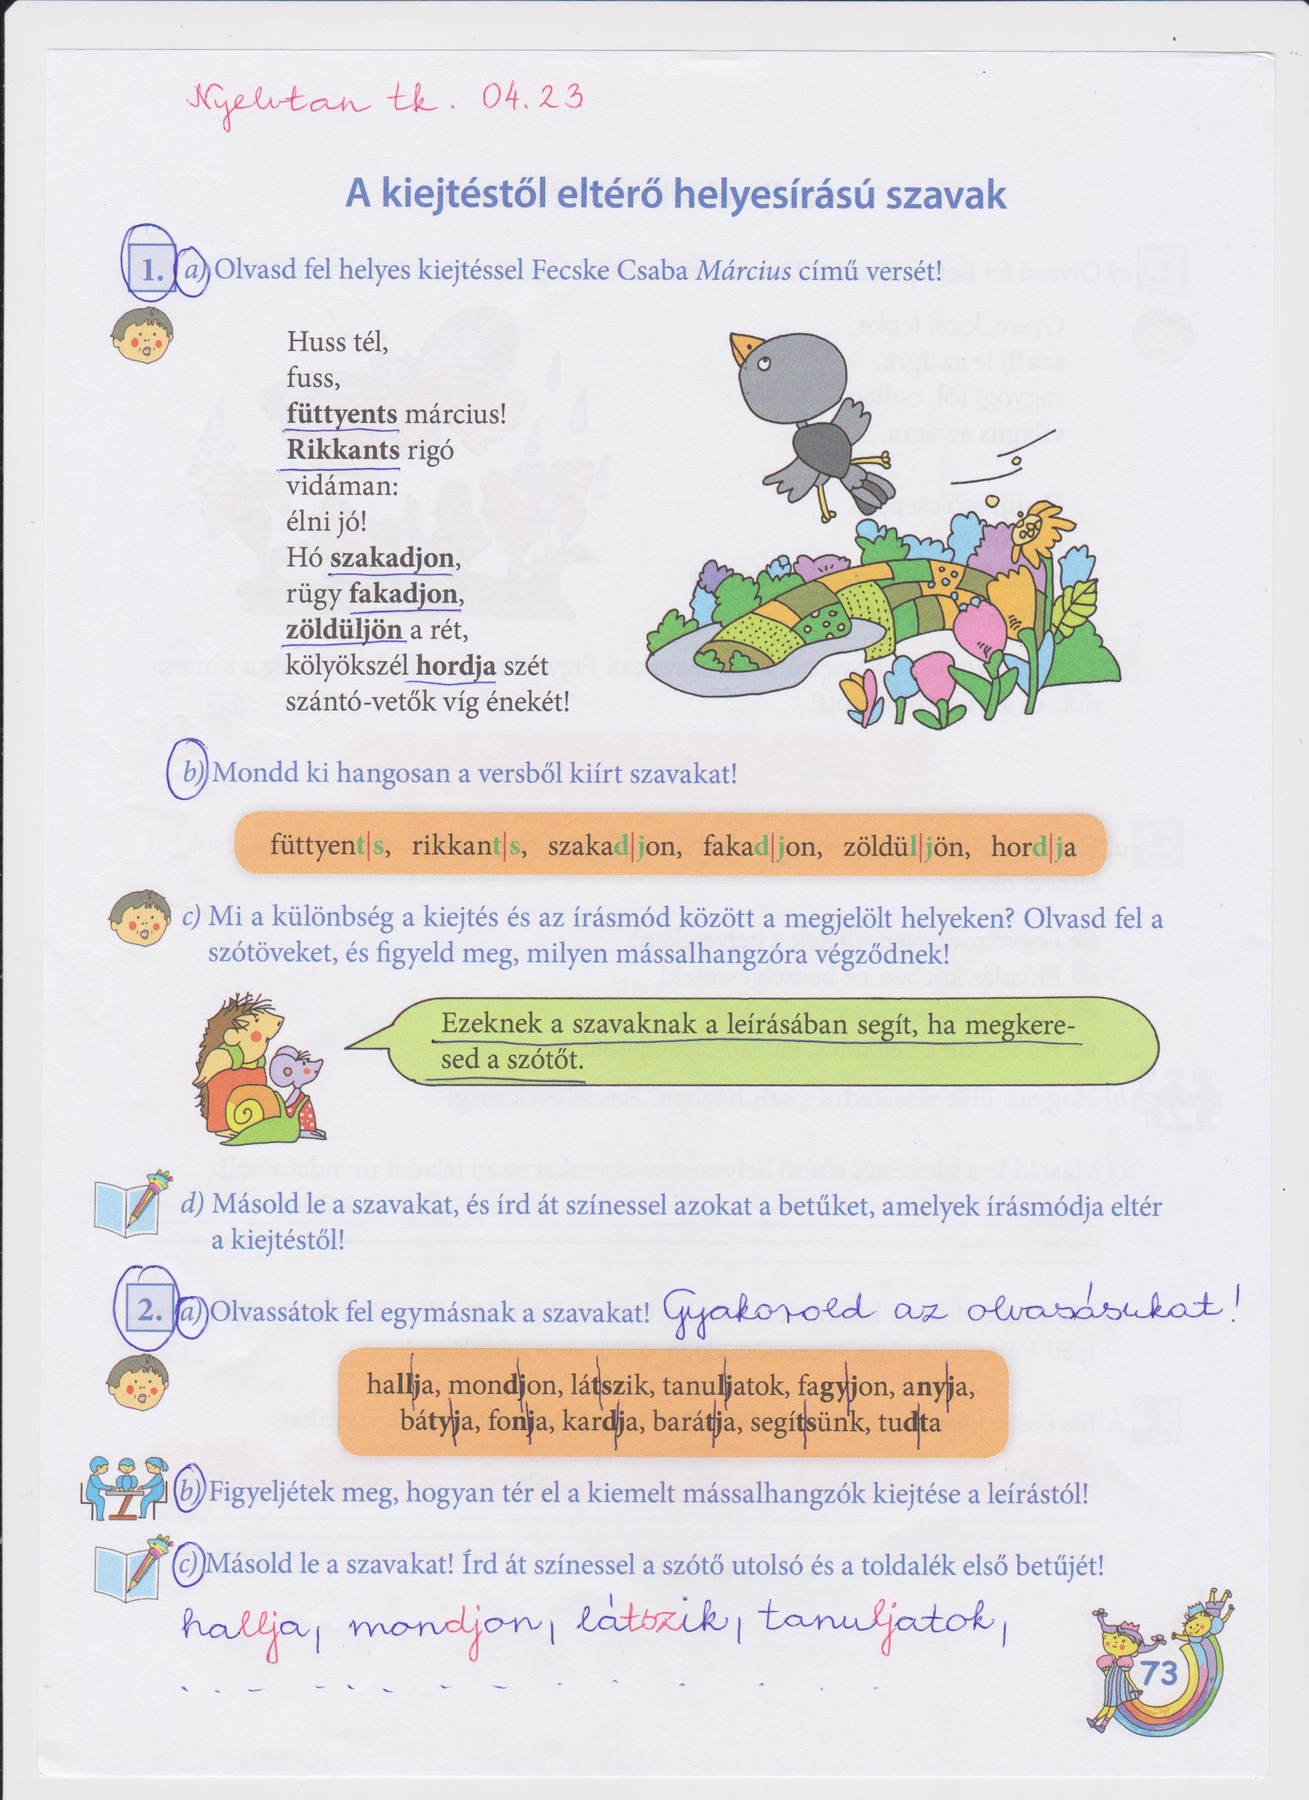 Nyelvtan tk. 04.23
A kiejtéstől eltérő helyesírású szavak
1. a) Olvasd fel helyes kiejtéssel Fecske Csaba Március című versét!
Huss tél,
fuss,
füttyents március!
Rikkants rigó
vidáman:
élni jó!
Hó szakadjon,
rügy fakadjon,
zöldüljön a rét,
kölyökszél hordja szét
szántó-vetők víg énekét!
b) Mondd ki hangosan a versből kiírt szavakat!
füttyent|s, rikkant|s, szakad|jon, fakad|jon, zöldül|jön, hord|ja
c) Mi a különbség a kiejtés és az írásmód között a megjelölt helyeken? Olvasd fel a
szótöveket, és figyeld meg, milyen mássalhangzóra végződnek!
Ezeknek a szavaknak a leírásában segít, ha megkere-
sed a szótőt.
d) Másold le a szavakat, és írd át színessel azokat a betűket, amelyek írásmódja eltér
a kiejtéstől!
2. a) Olvassátok fel egymásnak a szavakat! Gyakorold az olvasásukat!
hallja, mondjon, látszik, tanuljatok, fagyjon, anyja,
bátyja, fonja, kardja, barátja, segítsünk, tudta
b) Figyeljétek meg, hogyan tér el a kiemelt mássalhangzók kiejtése a leírástól!
c) Másold le a szavakat! Írd át színessel a szótő utolsó és a toldalék első betűjét!
hallja, mondjon, látszik, tanuljatok,
73